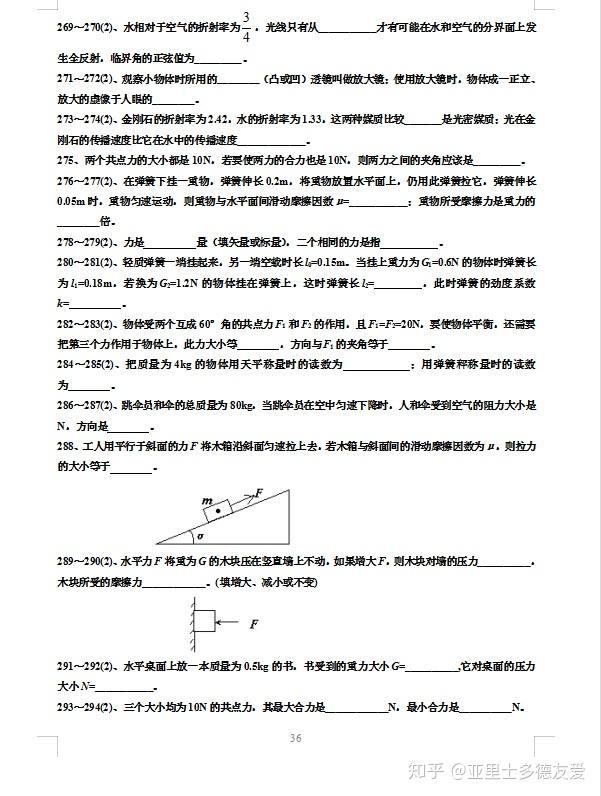 269～270(2)、水相对于空气的折射率为3/4，光线只有从__________才有可能在水和空气的分界面上发
生全反射，临界角的正弦值为________。
271～272(2)、观察小物体时所用的_______（凸或凹）透镜叫做放大镜；使用放大镜时，物体成一正立、
放大的虚像于人眼的_______。
273～274(2)、金刚石的折射率为2.42，水的折射率为1.33，这两种媒质比较______是光密媒质；光在金
刚石的传播速度比它在水中的传播速度___________。
275、两个共点力的大小都是10N，若要使两力的合力也是10N，则两力之间的夹角应该是________。
276～277(2)、在弹簧下挂一重物，弹簧伸长0.2m，将重物放置水平面上，仍用此弹簧拉它，弹簧伸长
0.05m时，重物匀速运动，则重物与水平面间滑动摩擦因数μ=__________；重物所受摩擦力是重力的
_______倍。
278～279(2)、力是_________量（填矢量或标量），二个相同的力是指__________。
280～281(2)、轻质弹簧一端挂起来，另一端空载时长l₀=0.15m，当挂上重力为G₁=0.6N的物体时弹簧长
为l₁=0.18m，若换为G₂=1.2N的物体挂在弹簧上，这时弹簧长l₂=________，此时弹簧的劲度系数
k=_________。
282～283(2)、物体受两个互成60°角的共点力F₁和F₂的作用，且F₁=F₂=20N，要使物体平衡，还需要
把第三个力作用于物体上，此力大小等_______，方向与F₁的夹角等于_______。
284～285(2)、把质量为4kg的物体用天平称量时的读数为___________；用弹簧秤称量时的读数
为_______。
286～287(2)、跳伞员和伞的总质量为80kg，当跳伞员在空中匀速下降时，人和伞受到空气的阻力大小是
N，方向是_______。
288、工人用平行于斜面的力F将木箱沿斜面匀速拉上去，若木箱与斜面间的滑动摩擦因数为μ，则拉力
的大小等于_______。
m F
α
289～290(2)、水平力F将重为G的木块压在竖直墙上不动，如果增大F，则木块对墙的压力_________，
木块所受的摩擦力__________。(填增大、减小或不变)
F
291～292(2)、水平桌面上放一本质量为0.5kg的书，书受到的重力大小G=_________,它对桌面的压力
大小N=__________。
293～294(2)、三个大小均为10N的共点力，其最大合力是___________N，最小合力是_________N。
36
知乎 @亚里士多德友爱